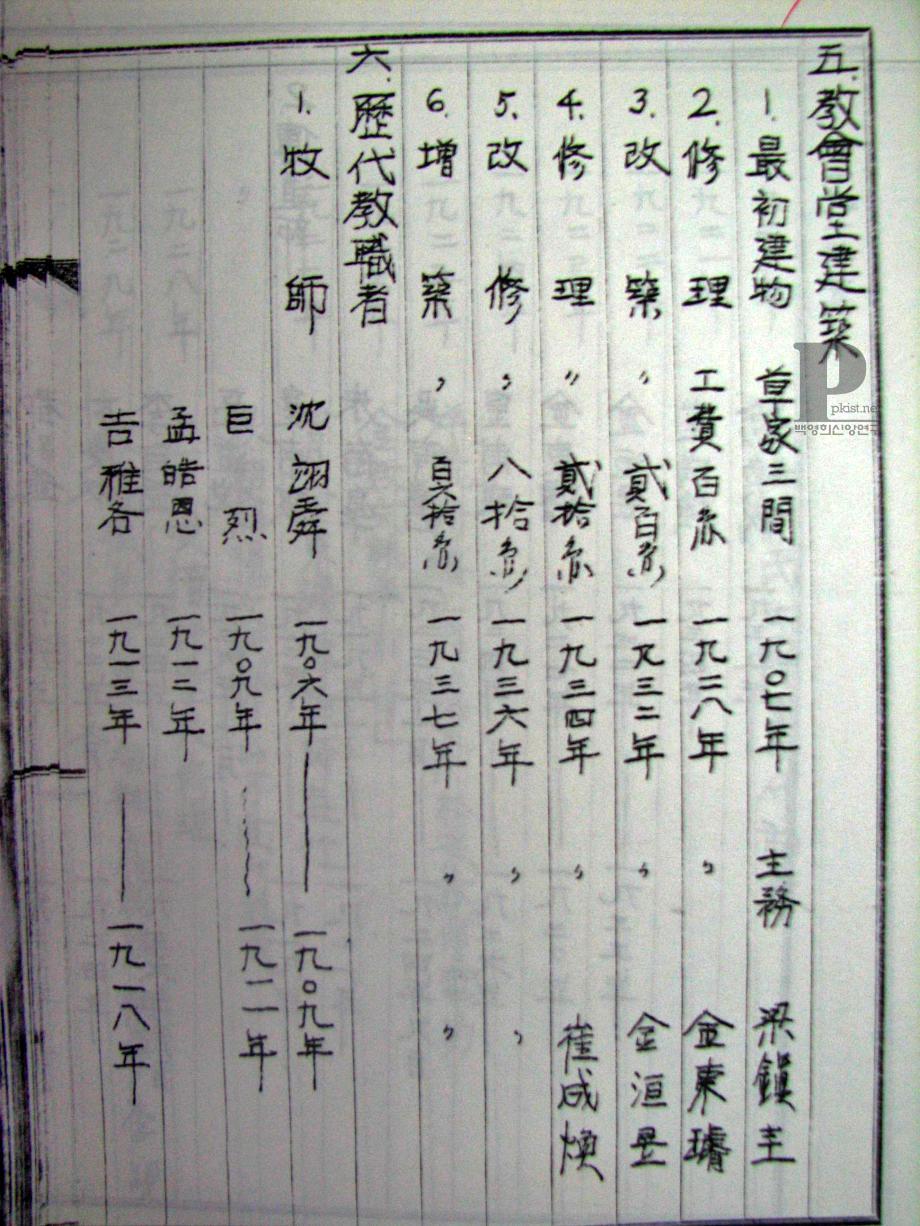 五.教會堂建築
1. 最初建物 草家三間 一九〇七年 主務 梁鎭主
2. 修理 工費百원 一九二八年 〃 金東璿
3. 改築 〃 貳百원 一九三二年 〃 金洹昱
4. 修理 〃 貳拾원 一九三四年 〃 崔成煥
5. 改修 〃 八拾원 一九三六年 〃 〃
6. 增築 〃 百拾원 一九三七年 〃 〃
六.歷代教職者
1. 牧師 沈翊舜 一九〇六年 — 一九〇九年
巨烈 一九〇九年 ~ 一九二一年
孟皓恩 一九一二年
吉雅各 一九一三年 — 一九一八年
pkist.net
백영희신앙연구